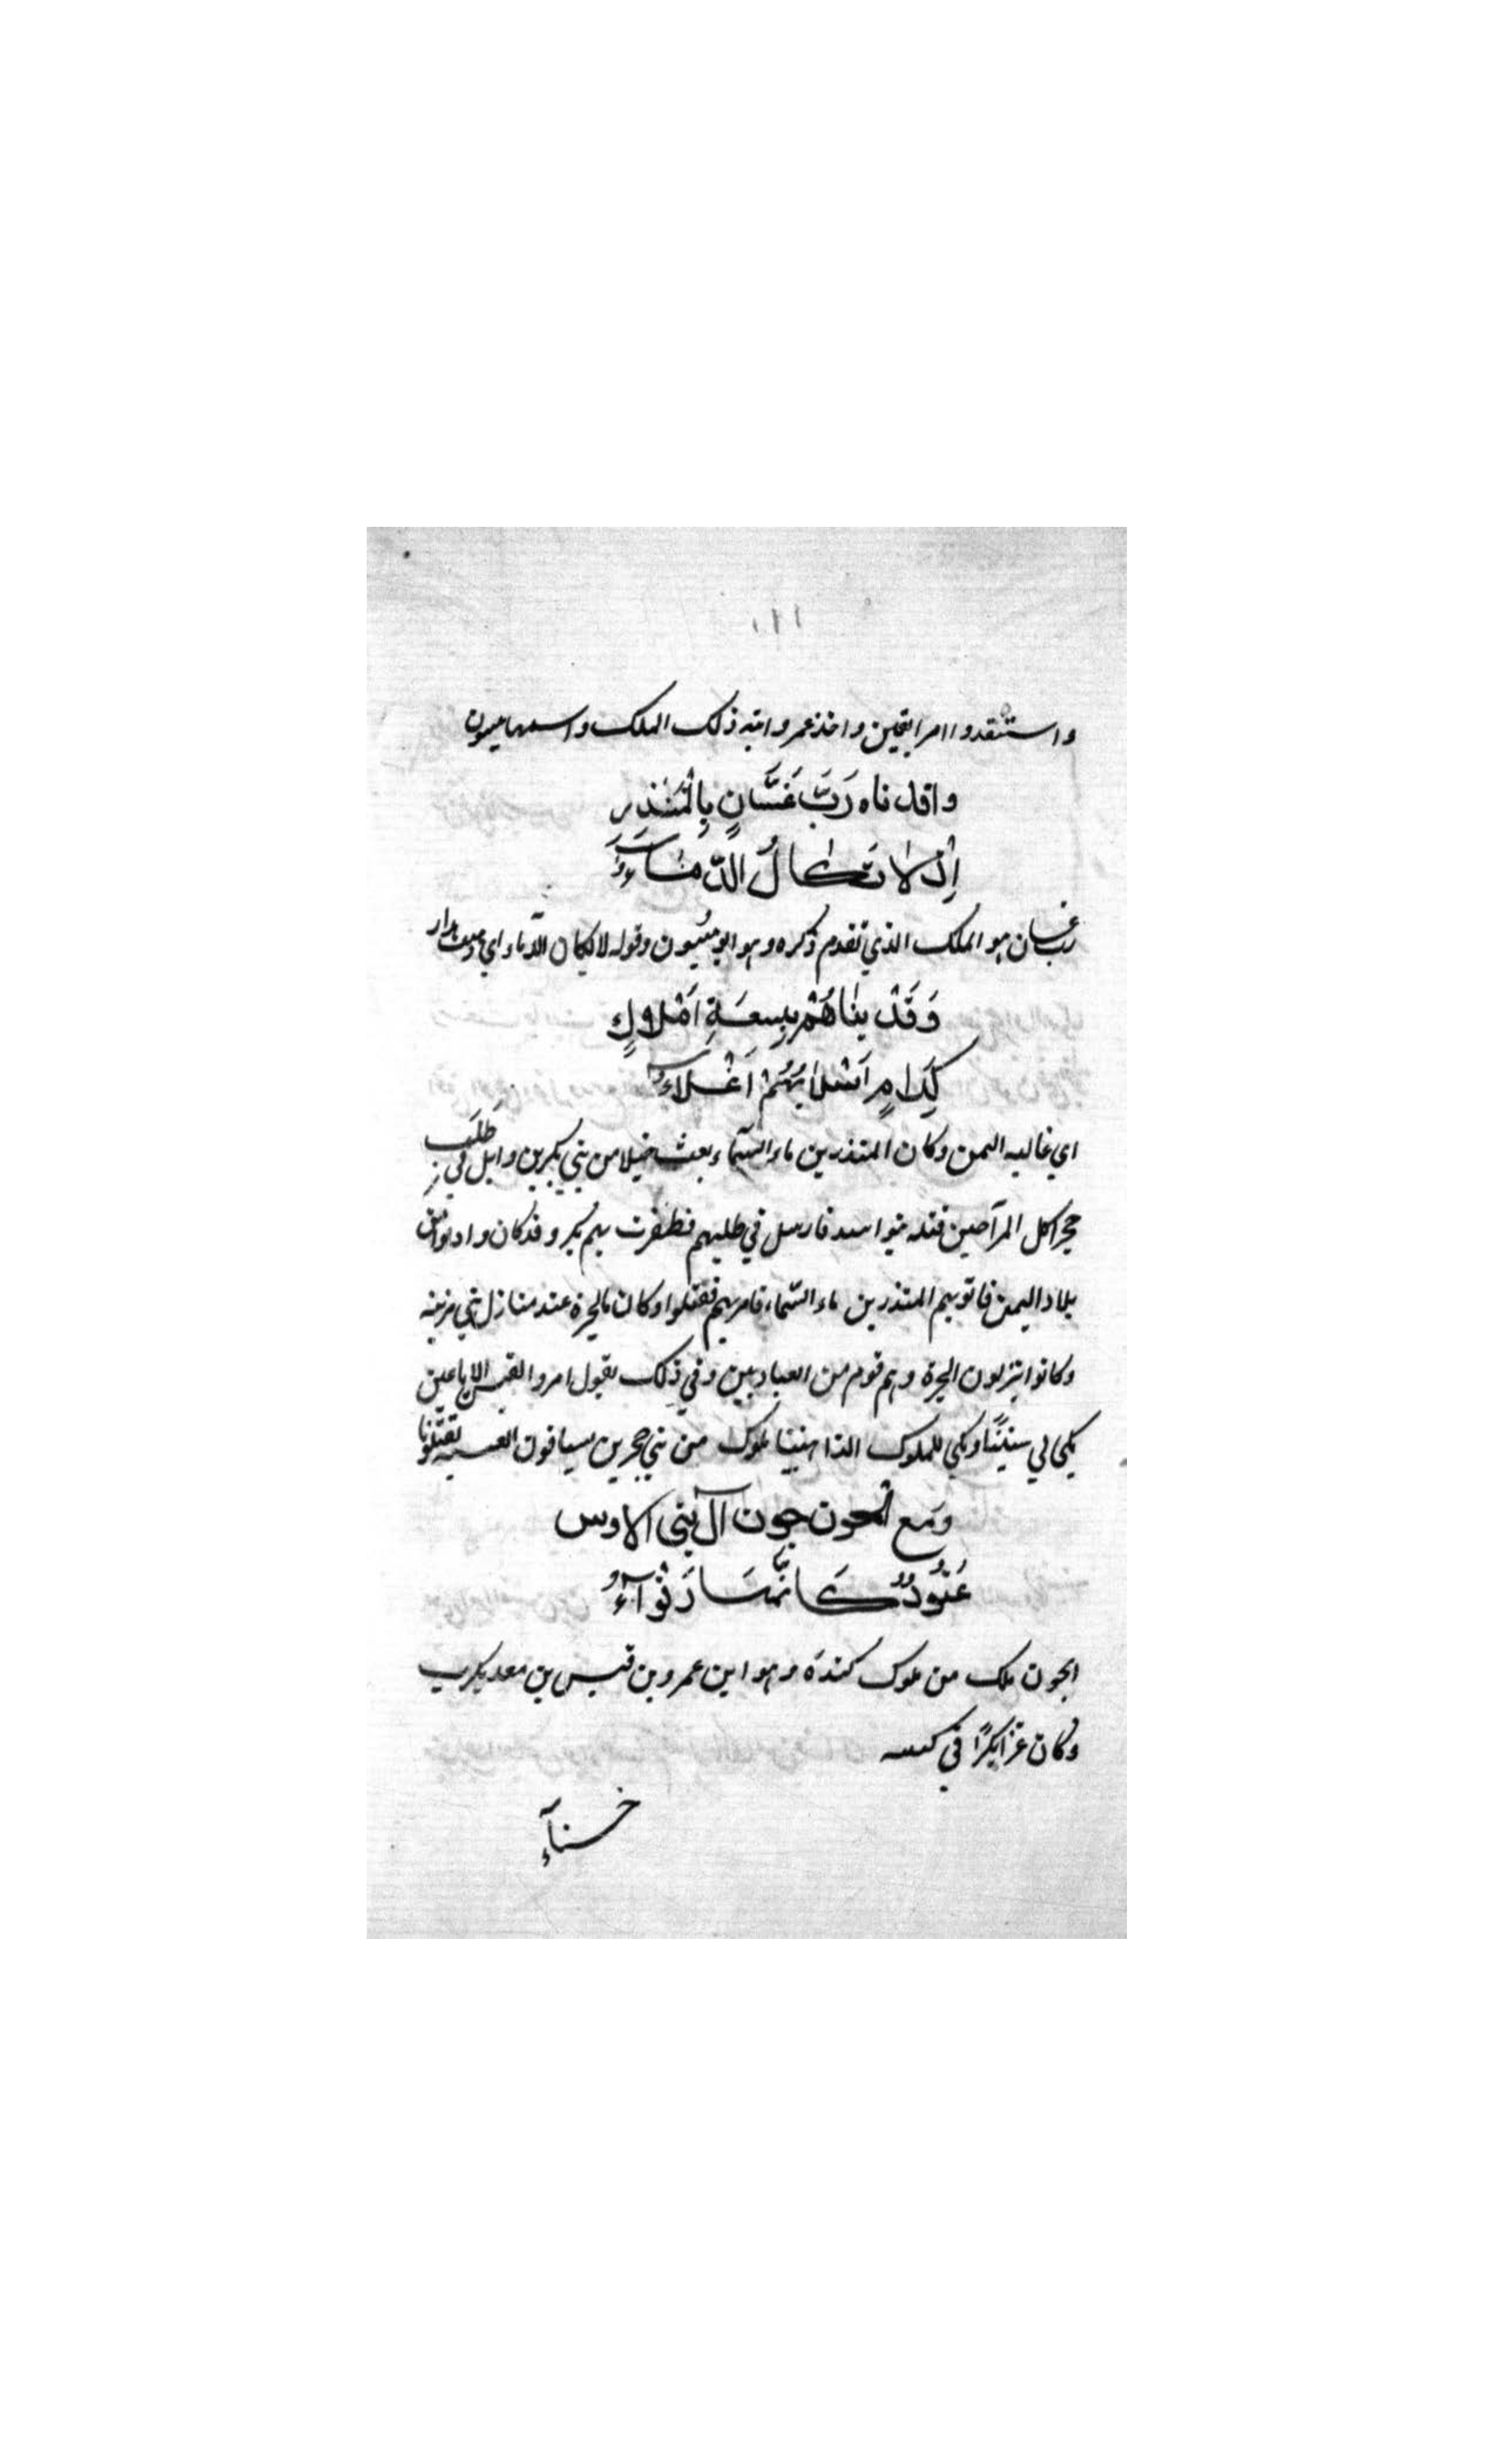 ١١١
واستنقدوا امرا لقيس واخذ عمرو ابنه ذلك الملك واسمها ميسون
واقدناه رَبَّ غَسَّانٍ بِالْمُنْذِرِ
إِذْ لَا تُكَالُ الدِّمَاءُ
رب غسان هو الملك الذي تقدم ذكره وهو ابو ميسون وقوله لا تكال الدماء اي
وَقَدْ يناهُمْ بِتِسعَةِ اَمْلَاكٍ
كِرَامٍ اَسْلَابُهُمْ اَغْلَاءُ
اي غالية الثمن وكان المنذر بن ماء السماء بعث خيلا من بني بكر بن وايل في طلب
حجر اكل المرار حين قتله بنو اسد فارسل في طلبهم فظفرت بهم بكر وقد كان وا
بلاد اليمن فاتو بهم المنذر بن ماء السماء فامر بهم فقتلوا وكان بالحيرة عند منازل بني مرينه
وكانوا ينزلون الحيرة وهم قوم من العباديين وفي ذلك يقول امرو القيس الا يا عين
بكي لي سنينًا وبكي للملوك الذاهبينا ملوك من بني حجر بن يساقون العسيه يقتلونا
ومع الجون جون آل بني الاوس
عَنُودٌ كَانَّهَا دَفْوَآءُ
الجون ملك من ملوك كندة وهو ابن عمرو بن قيس بن معديكرب
وكان غزا بكرًا في كتيبه
خسنآء